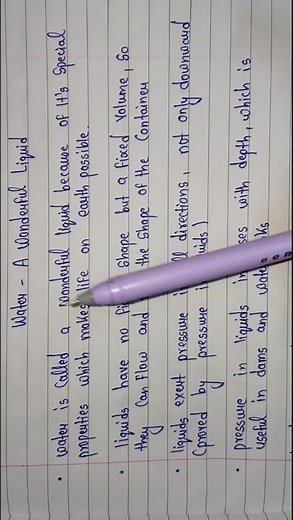 Water - A Wonderful Liquid
• water is called a wonderful liquid because of It's special
properties which makes life on earth possible.
• liquids have no shape but a fixed volume, so
they can flow and the shape of the Container
• liquids exert pressure directions, not only downward
(proved by pressure )
• pressure in liquids with depth, which is
useful in dams and